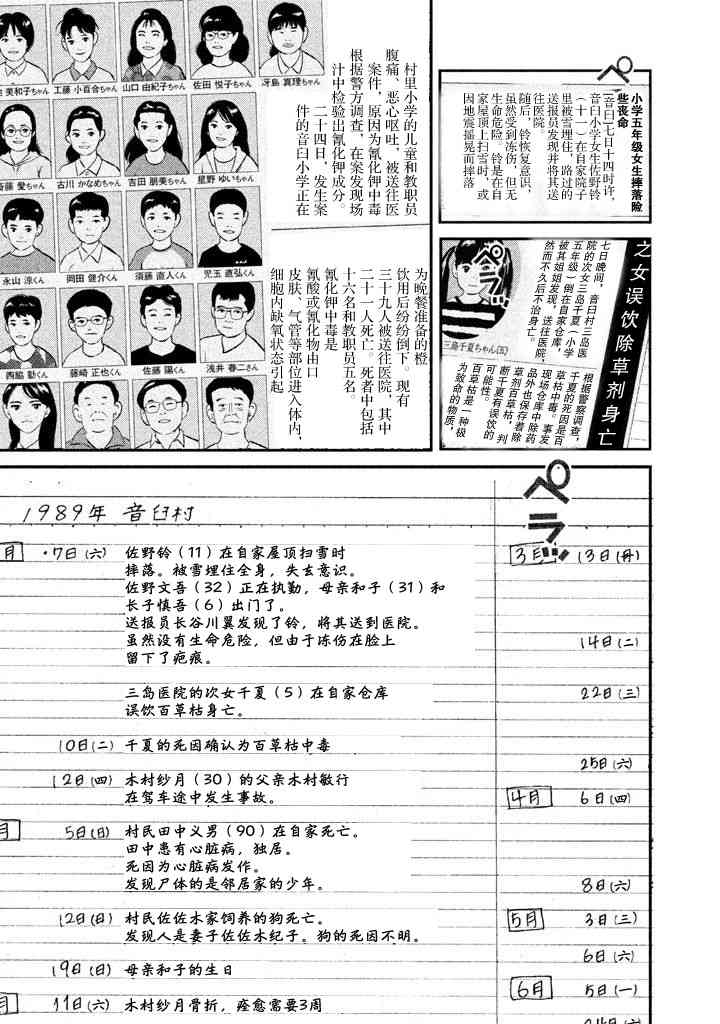 ペラ
小学五年级女生摔落险
些丧命
音臼七日十四时许，
音臼小学女生佐野铃
（十一）在自家院子
里被雪埋住，路过的
送报员发现并将其送
往医院。
随后，铃恢复意识，
虽然受到冻伤，但无
生命危险。铃是在自
家屋顶上扫雪时，或
因地震摇晃而摔落
村里小学的儿童和教职员
腹痛、恶心呕吐，被送往医
案件，原因为氰化钾中毒
根据警方调查，在案发现场
汁中检验出氰化钾成分。
二十四日，发生案
件的音臼小学正在
美和子ちゃん
工藤 小百合ちゃん
山口 由紀子ちゃん
佐田 悦子ちゃん
冴島 真理ちゃん
斎藤 愛ちゃん
古川 かなめちゃん
吉田 朋美ちゃん
星野 ゆいちゃん
永山 涼くん
岡田 健介くん
須藤 直人くん
児玉 直弘くん
西脇 勤くん
藤崎 正也くん
佐藤 陽くん
浅井 春二さん
为晚餐准备的橙
饮用后纷纷倒下。现有
三十九人被送往医院，其中
二十一人死亡。死者中包括
十六名和教职员五名。
氰化钾中毒是
氰酸或氰化物由口
皮肤、气管等部位进入体内，
细胞内缺氧状态引起
之女误饮除草剂身亡
七日晚间，音臼村三岛医
院的次女三岛千夏（小学
五年级）倒在自家仓库，
被其姐姐发现。送往医院，
然而不久后不治身亡。
ペラ
三島千夏ちゃん(五)
根据警察调查，
千夏的死因是百
草枯中毒。事发
现场仓库中除药
品外也保存着除
草剂百草枯，判
断千夏有误饮的
可能性。
百草枯是一种极
为致命的物质，
ペラッ
1989年 音臼村
月
・7日(六) 佐野铃（11）在自家屋顶扫雪时
摔落。被雪埋住全身，失去意识。
佐野文吾（32）正在执勤，母亲和子（31）和
长子慎吾（6）出门了。
送报员长谷川翼发现了铃，将其送到医院。
虽然没有生命危险，但由于冻伤在脸上
留下了疤痕。
三岛医院的次女千夏（5）在自家仓库
误饮百草枯身亡。
10日(二) 千夏的死因确认为百草枯中毒
12日(四) 木村纱月（30）的父亲木村敏行
在驾车途中发生事故。
月
5日(日) 村民田中义男（90）在自家死亡。
田中患有心脏病，独居。
死因为心脏病发作。
发现尸体的是邻居家的少年。
12日(日) 村民佐佐木家饲养的狗死亡。
发现人是妻子佐佐木纪子。狗的死因不明。
19日(日) 母亲和子的生日
月
11日(六) 木村纱月骨折，痊愈需要3周
3月 13日(月)
14日(二)
22日(三)
25日(六)
4月 6日(四)
8日(六)
5月 3日(三)
6日(六)
6月 5日(一)
24日(六)